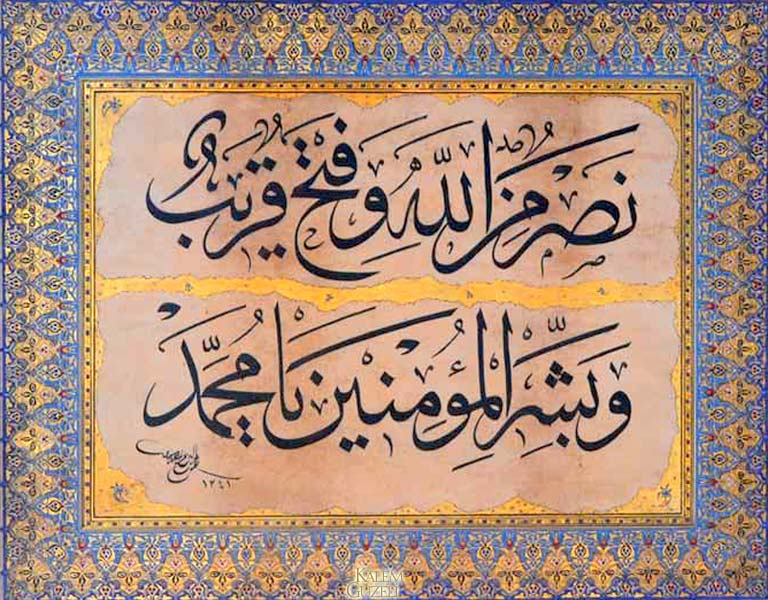 نَصْرٌ مِنَ اللّٰهِ وَفَتْحٌ قَرِيبٌ
وَبَشِّرِ الْمُؤْمِنِينَ يَا مُحَمَّد
١٢٤١
KALEM GÜZELİ